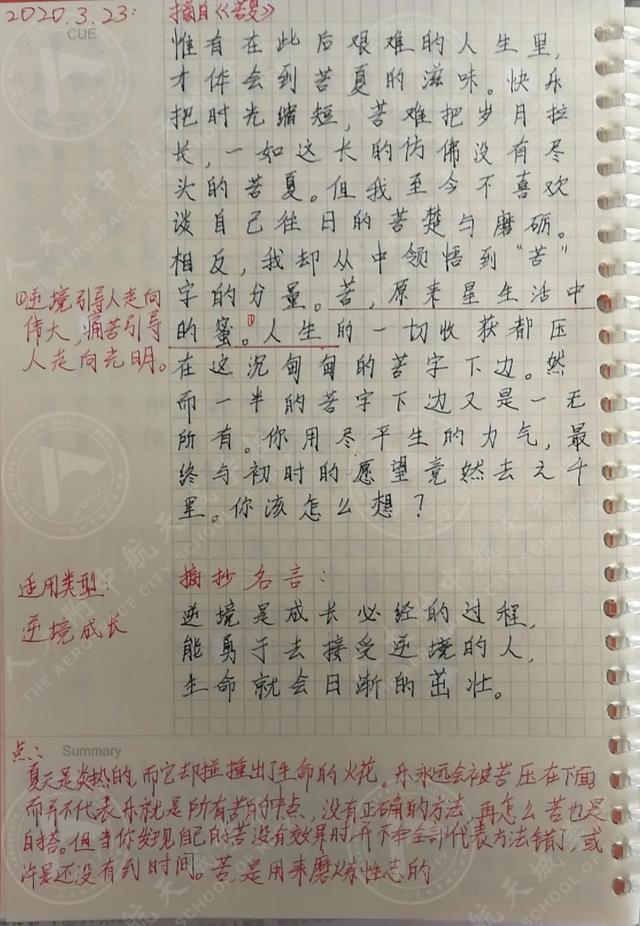 2020.3.23:
摘自《苦夏》
CUE
惟有在此后艰难的人生里,
才体会到苦夏的滋味。快乐
把时光缩短,苦难把岁月拉
长,一如这长的仿佛没有尽
头的苦夏。但我至今不喜欢
谈自己往日的苦楚与磨砺。
相反,我却从中领悟到“苦”
字的分量。苦,原来是生活中
的蜜。①人生的一切收获都压
在这沉甸甸的苦字下边。然
而一半的苦字下边又是一无
所有。你用尽平生的力气,最
终与初时的愿望竟然去之千
里。你该怎么想?
①逆境引导人走向
伟大,痛苦引导
人走向光明。
适用类型:
逆境成长
摘抄名言:
逆境是成长必经的过程,
能勇于去接受逆境的人,
生命就会日渐的茁壮。
点:
Summary
夏天是炎热的,而它却碰撞出了生命的火花。乐永远会被苦压在下面
而并不代表乐就是所有苦的中点,没有正确的方法,再怎么苦也是
白搭。但当你发见自己的苦没有效果时,并不全部代表方法错了,或
许是还没有到时间。苦是用来磨炼性志的
人大附中航天城
THE AEROSPACE CITY SCHOOL OF